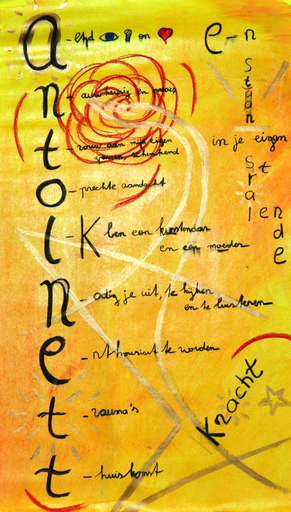 a -ltijd en
n - auwkeurig en precies
t - rouw aan mijn eigen
schenkend
o - prechte aandacht
I - K ben een kunstenaar
en een moeder
N - odig je uit, te kijken
en te luisteren
e - nthousiast te worden
t
t - huiskomt
e-n
staan
in je eigen
stralende
Kracht